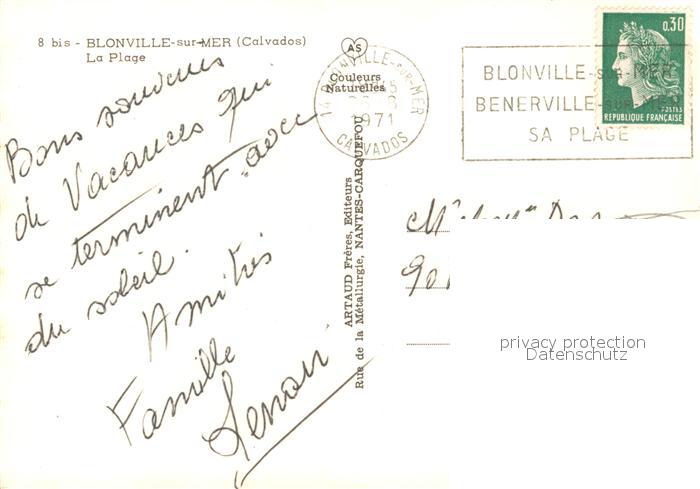 8 bis - BLONVILLE-sur-MER (Calvados)
La Plage
AS
Couleurs
Naturelles
14 BLONVILLE-SUR-MER
1971
CALVADOS
BLONVILLE-SUR-MER
BENERVILLE-SUR-MER
SA PLAGE
0,30
POSTES
REPUBLIQUE FRANÇAISE
Bons souvenirs
de Vacances qui
se terminent avec
du soleil.
Amitiés
Famille
ARTAUD Frères, Editeurs
Rue de la Métallurgie, NANTES-CARQUEFOU
90
privacy protection
Datenschutz